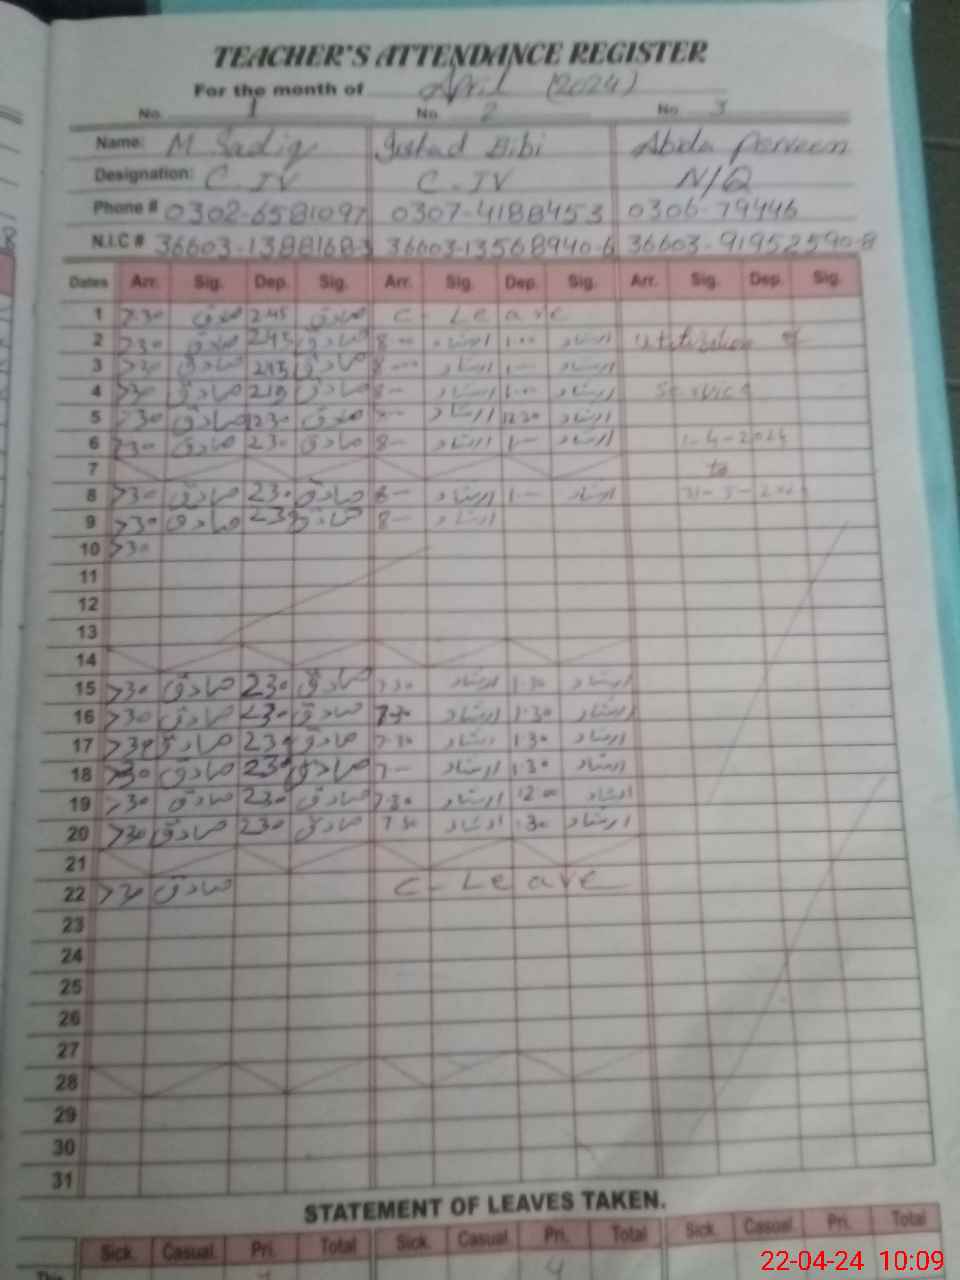 TEACHER'S ATTENDANCE REGISTER
For the month of April (2024)
No 1 No 2 No 3
Name: M Sadiq Irshad Bibi Abida Parveen
Designation: C-IV C-IV N/Q
Phone # 0302-6581097 0307-4188453 0306-79446
N.I.C # 36603-1388168-3 36603-13568940-6 36603-91952590-8
Dates Arr. Sig. Dep. Sig. Arr. Sig. Dep. Sig. Arr. Sig. Dep. Sig.
1 7:30 صادق 245 صادق C-Leave
2 7:30 صادق 245 صادق 8-00 ارشاد 1-00 ارشاد utilization of
3 7:30 صادق 245 صادق 8-00 ارشاد 1-- ارشاد
4 7:30 صادق 215 صادق 8-- ارشاد 1-00 ارشاد Service
5 730 صادق 230 صادق ارشاد 1230 ارشاد
6 730 صادق 230 صادق 8-- ارشاد 1-- ارشاد 1-4-2024
7 to
8 730 صادق 230 صادق 8-- ارشاد 1-- ارشاد
9 730 صادق 230 صادق 8-- ارشاد
10 730
11
12
13
14
15 730 صادق 230 صادق 7-30 ارشاد 1-30 ارشاد
16 730 صادق 230 صادق 7-30 ارشاد 1-30 ارشاد
17 730 صادق 230 صادق 7-30 ارشاد 1-30 ارشاد
18 730 صادق 230 صادق 7-- ارشاد 1-30 ارشاد
19 730 صادق 230 صادق 7-30 ارشاد 12-00 ارشاد
20 730 صادق 230 صادق 7-30 ارشاد 1-30 ارشاد
21
22 730 صادق C-Leave
23
24
25
26
27
28
29
30
31
STATEMENT OF LEAVES TAKEN.
Sick. Casual. Pri. Total Sick. Casual. Pri. Total Sick. Casual. Pri. Total
This 4
22-04-24 10:09